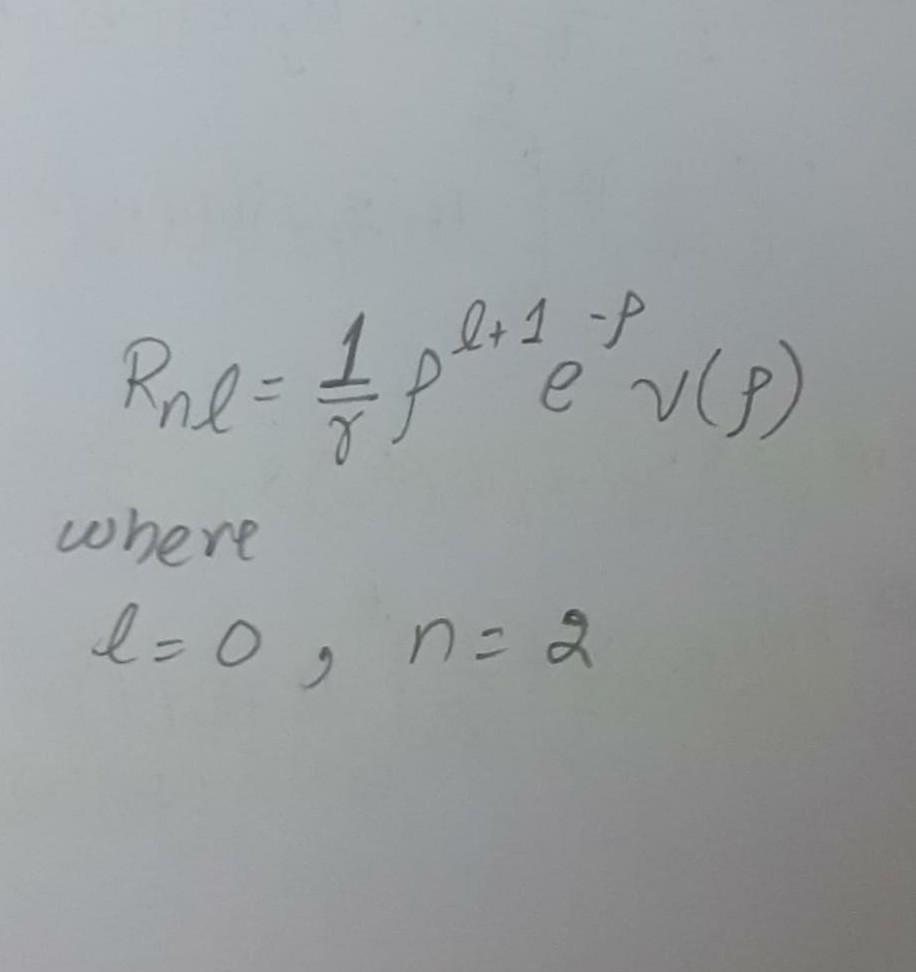 Rnℓ = 1/r ρ^(ℓ+1) e^(-ρ) v(ρ)
where
ℓ = 0 , n = 2